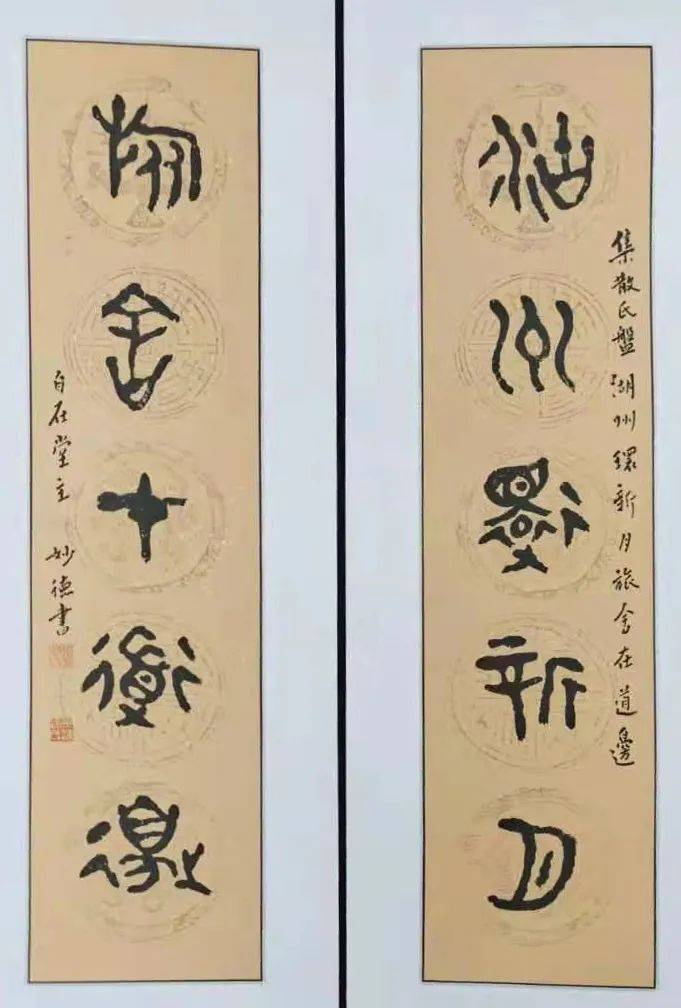 湖州環新月
集散氏盤 湖州環新月旅舍在道邊
旅舍在道邊
自在堂主 妙德書